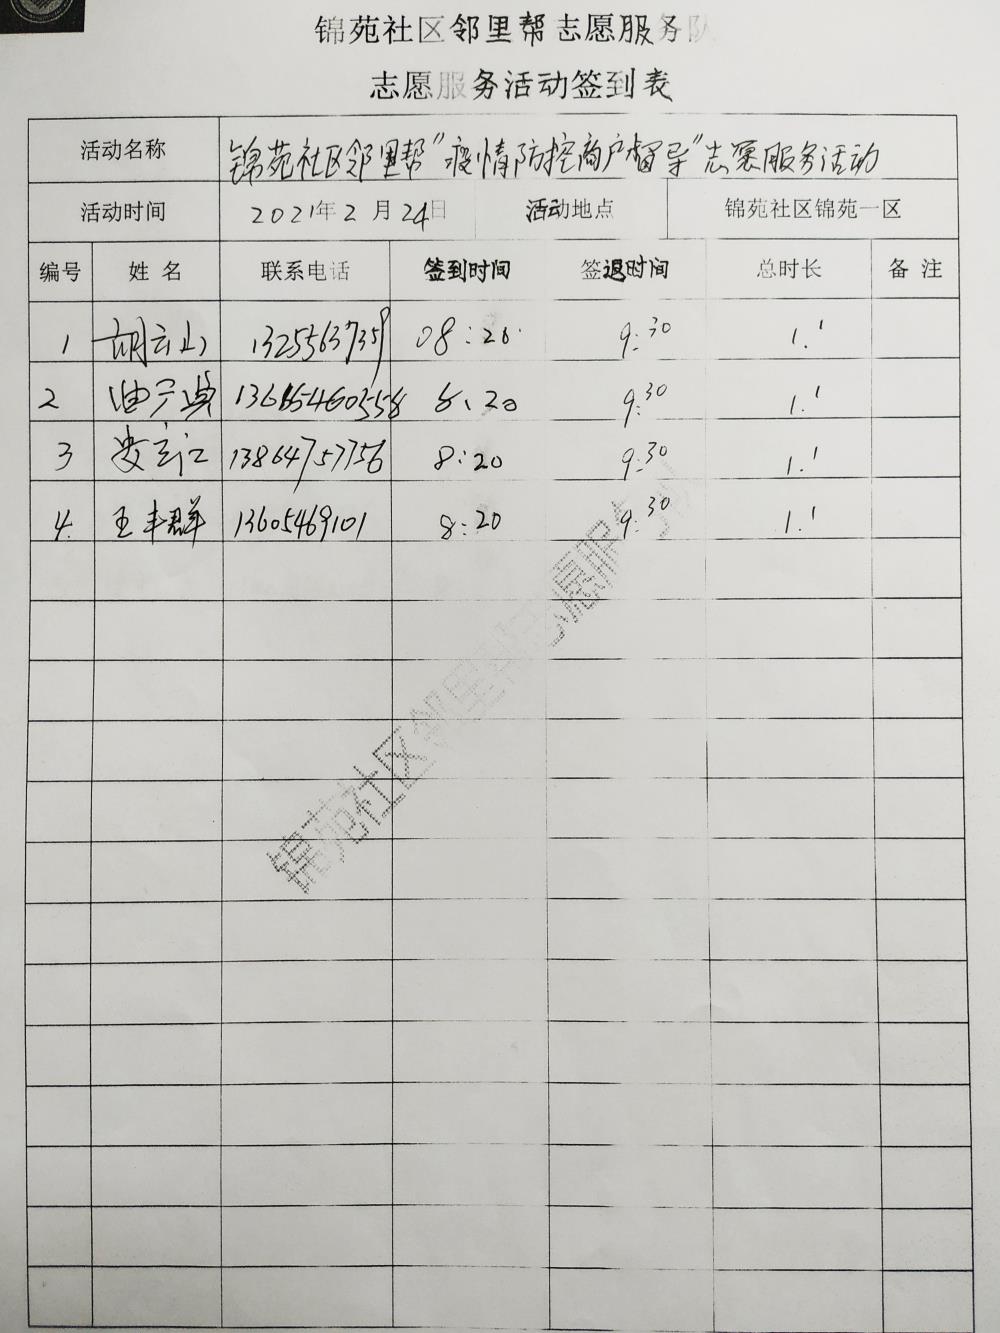 锦苑社区邻里帮志愿服务队
志愿服务活动签到表
活动名称 锦苑社区邻里帮"疫情防控商户督导"志愿服务活动
活动时间 2021年2月24日 活动地点 锦苑社区锦苑一区
编号 姓名 联系电话 签到时间 签退时间 总时长 备注
1 胡云山 13255637359 08:20 9:30 1.1
2 13615460358 8:20 9:30 1.1
3 13864757756 8:20 9:30 1.1
4 王丰群 13605469101 8:20 9:30 1.1
锦苑社区邻里帮志愿服务队